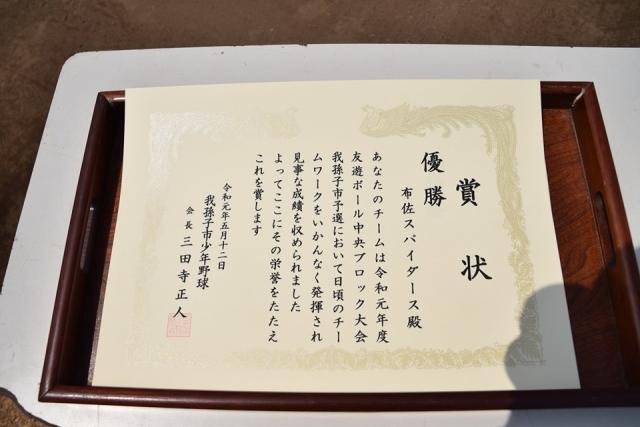 賞状
優勝
布佐スパイダース殿
あなたのチームは令和元年度
友遊ボール中央ブロック大会
我孫子市予選において日頃のチー
ムワークをいかんなく発揮され
見事な成績を収められました
よってここにその栄誉をたたえ
これを賞します
令和元年五月十二日
我孫子市少年野球
会長 三田寺正人